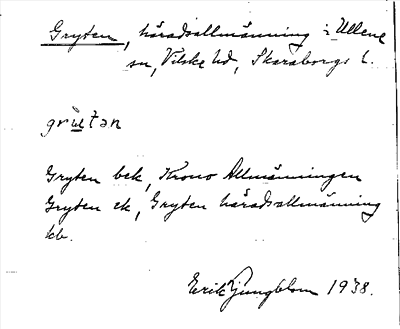 Gryten, häradsallmänning i Ullene
sn, Vilske hd, Skaraborgs l.
grütan
Gryten bek, Krono Allmänningen
Gryten ek, Gryten häradsallmänning
kb.
Erik Ljungblom 1938.